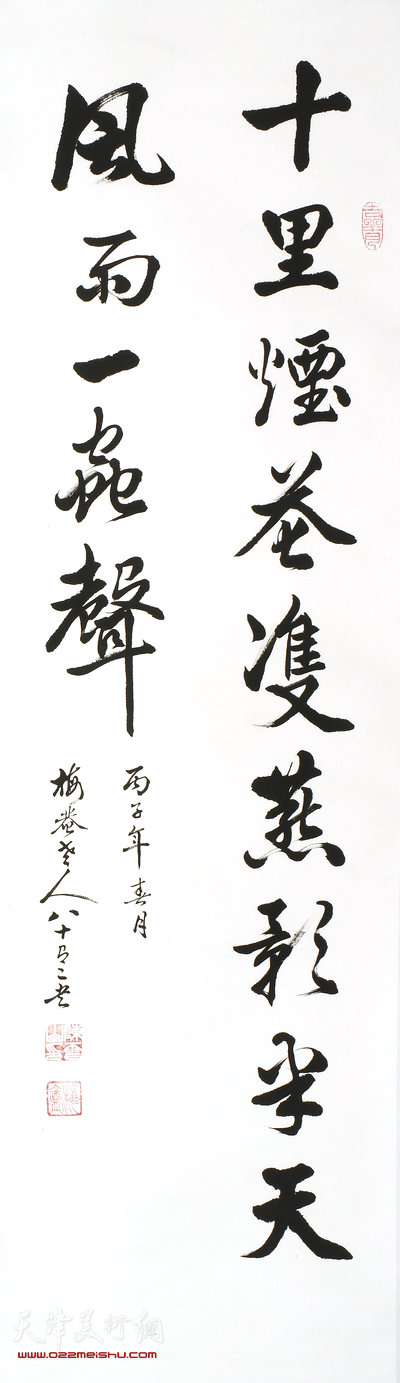 十里煙花雙燕影半天
風雨一蟲聲
丙子年春月
梅菴老人八十又二书
天津美術網
www.022meishu.com